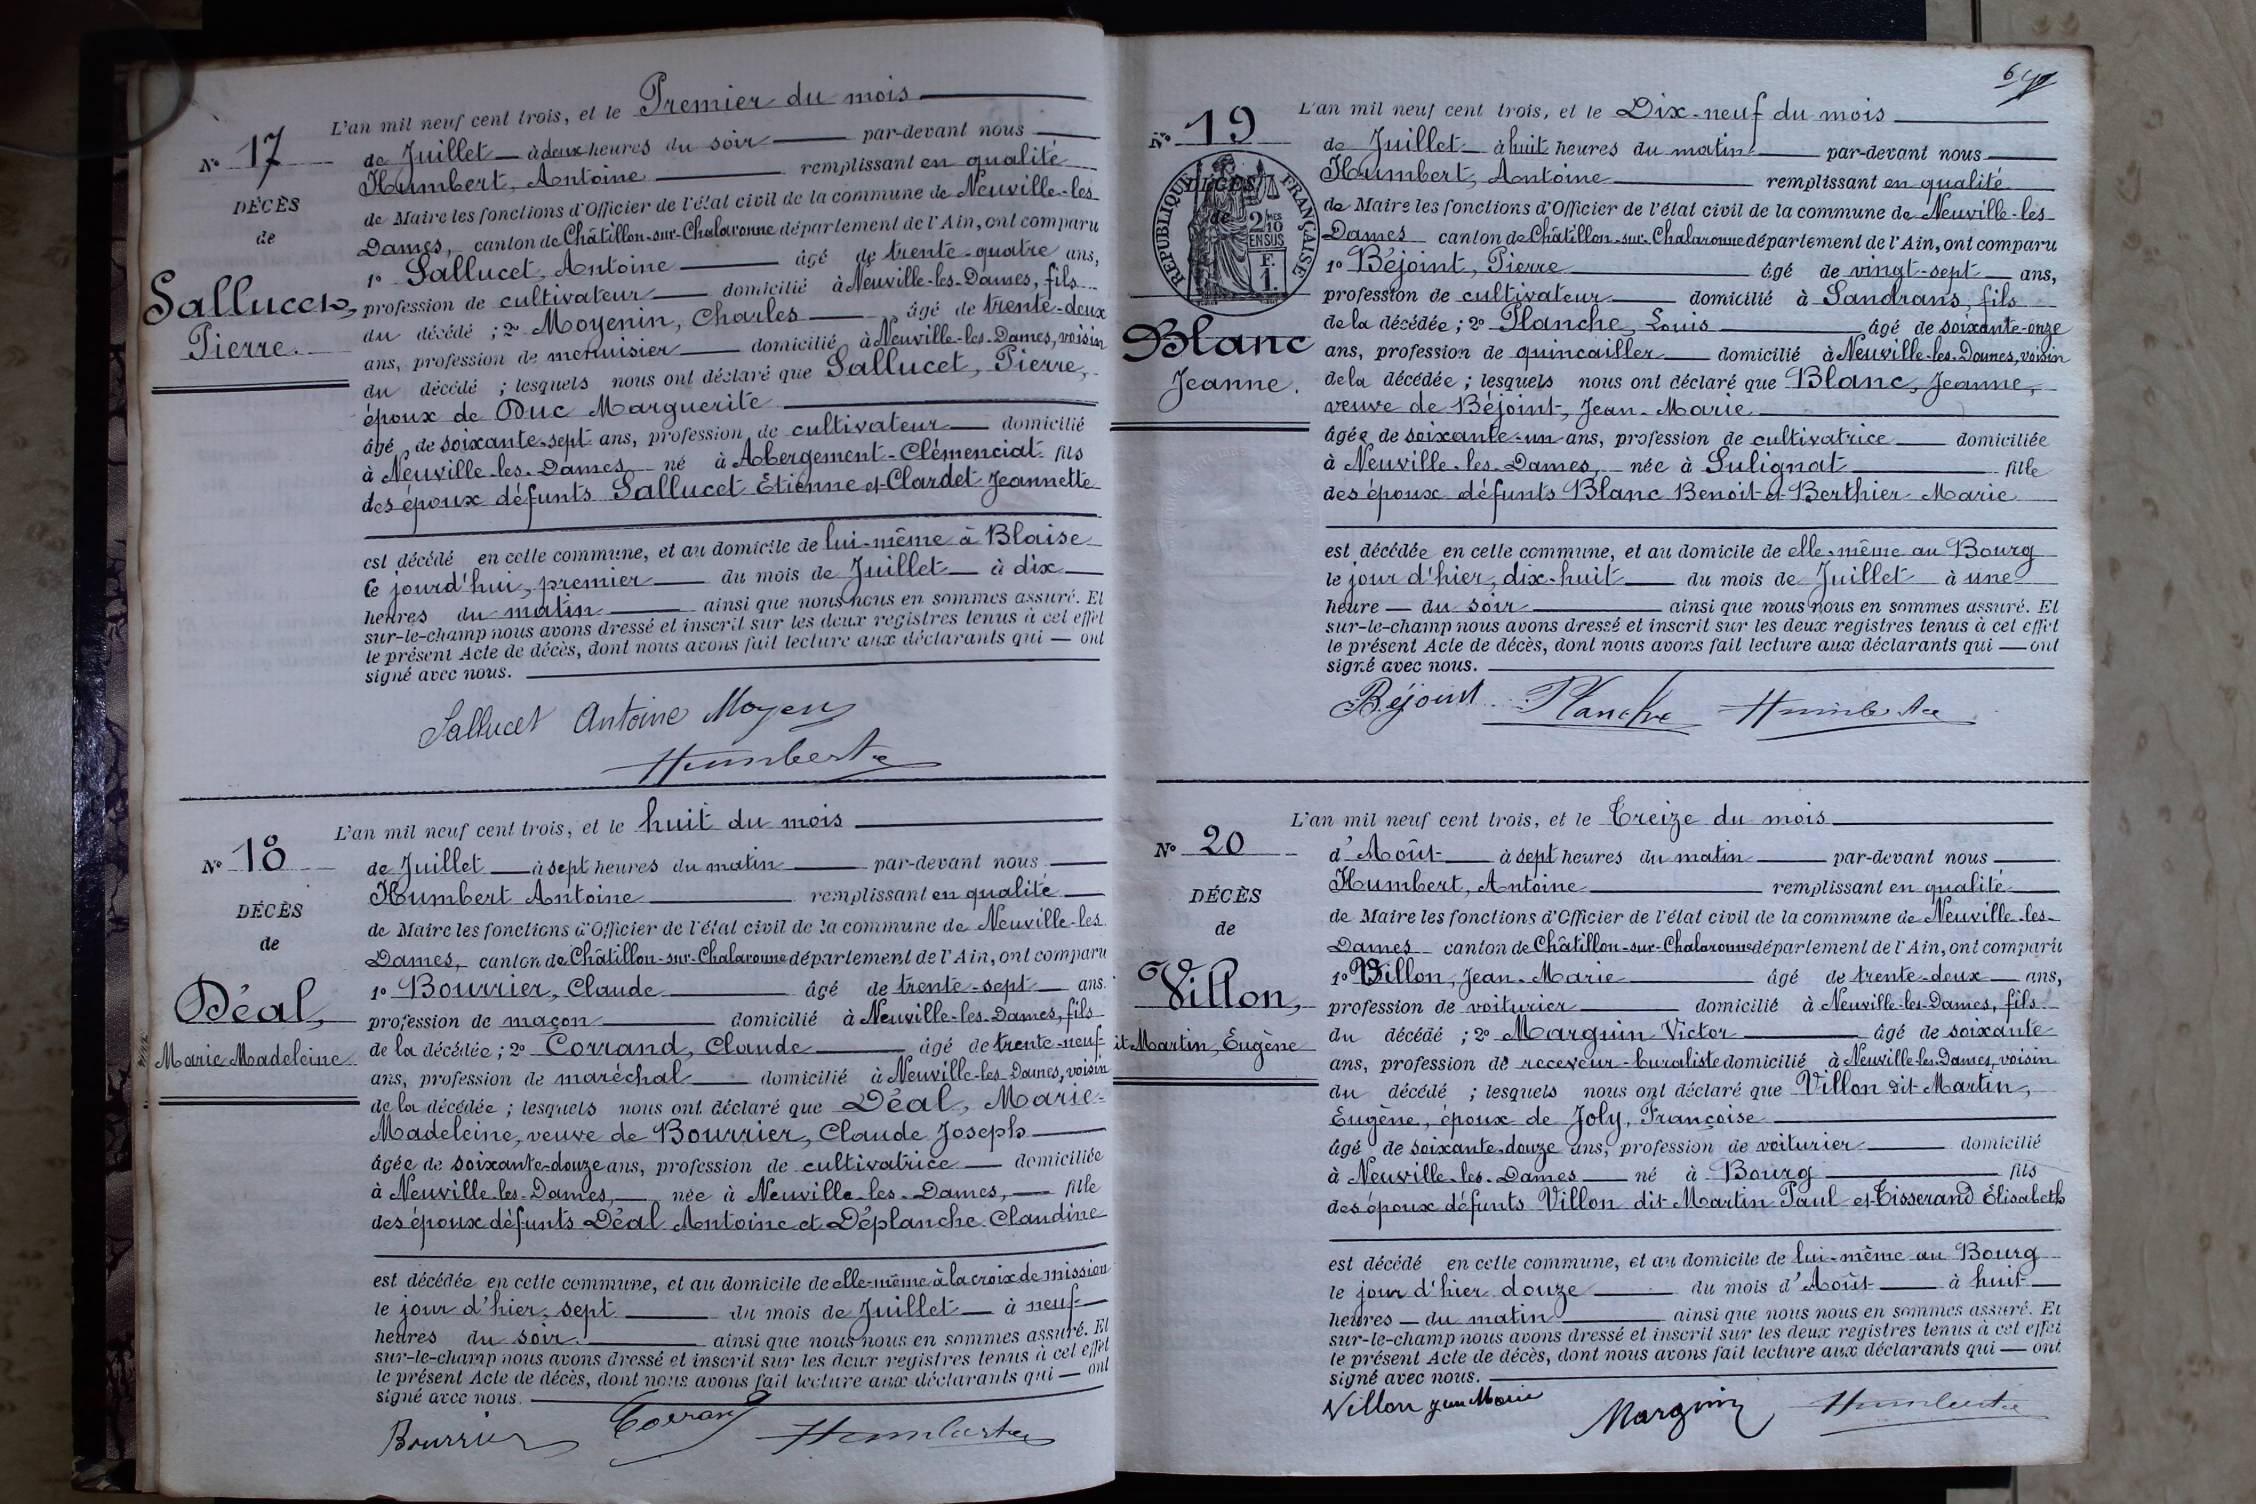 L'an mil neuf cent trois, et le Premier du mois
N° 17
de Juillet à deux heures du soir par-devant nous
Humbert, Antoine remplissant en qualité
DÉCÈS
de Maire les fonctions d'Officier de l'état civil de la commune de Neuville-les-
de
Dames, canton de Châtillon-sur-Chalaronne département de l'Ain, ont comparu
1° Sallucet, Antoine âgé de trente-quatre ans,
Sallucet,
profession de cultivateur domicilié à Neuville-les-Dames, fils
du décédé ; 2° Moyenin, Charles âgé de trente-deux
Pierre.
ans, profession de menuisier domicilié à Neuville-les-Dames, voisin
du décédé ; lesquels nous ont déclaré que Sallucet, Pierre,
époux de Duc Marguerite
âgé de soixante-sept ans, profession de cultivateur domicilié
à Neuville-les-Dames, né à Abergement-Clémenciat fils
des époux défunts Sallucet Etienne et Clardet Jeannette
est décédé en cette commune, et au domicile de lui-même à Blaise
le jourd'hui, premier du mois de Juillet à dix
heures du matin ainsi que nous nous en sommes assuré. Et
sur-le-champ nous avons dressé et inscrit sur les deux registres tenus à cet effet
le présent Acte de décès, dont nous avons fait lecture aux déclarants qui ont
signé avec nous.
Sallucet Antoine Moyen
Humbert
L'an mil neuf cent trois, et le huit du mois
N° 18
de Juillet à sept heures du matin par-devant nous
Humbert Antoine remplissant en qualité
DÉCÈS
de Maire les fonctions d'Officier de l'état civil de la commune de Neuville-les
de
Dames, canton de Châtillon-sur-Chalaronne département de l'Ain, ont comparu
1° Bourrier, Claude âgé de trente-sept ans.
Déal,
profession de maçon domicilié à Neuville-les-Dames, fils
Marie Madeleine
de la décédée ; 2° Corrand, Claude âgé de trente-neuf
ans, profession de maréchal domicilié à Neuville-les-Dames, voisin
de la décédée ; lesquels nous ont déclaré que Déal, Marie-
Madeleine, veuve de Bourrier, Claude Joseph
âgée de soixante-douze ans, profession de cultivatrice domiciliée
à Neuville-les-Dames, née à Neuville-les-Dames, fille
des époux défunts Déal Antoine et Déplanche Claudine
est décédée en cette commune, et au domicile de elle-même à la croix de mission
le jour d'hier, sept du mois de Juillet à neuf
heures du soir. ainsi que nous nous en sommes assuré. Et
sur-le-champ nous avons dressé et inscrit sur les deux registres tenus à cet effet
le présent Acte de décès, dont nous avons fait lecture aux déclarants qui ont
signé avec nous.
Bourrier Corrand Humbert
L'an mil neuf cent trois, et le Dix-neuf du mois
N° 19
de Juillet à huit heures du matin par-devant nous
Humbert, Antoine remplissant en qualité
DÉCÈS
de
RÉPUBLIQUE FRANÇAISE
2/10 MES
EN SUS
F.
1.
de Maire les fonctions d'Officier de l'état civil de la commune de Neuville-les-
Dames canton de Châtillon-sur-Chalaronne département de l'Ain, ont comparu
1° Béjoint, Pierre âgé de vingt-sept ans,
profession de cultivateur domicilié à Sandrans, fils
Blanc
de la décédée ; 2° Planche, Louis âgé de soixante-onze
ans, profession de quincailler domicilié à Neuville-les-Dames, voisin
Jeanne.
de la décédée ; lesquels nous ont déclaré que Blanc, Jeanne,
veuve de Béjoint, Jean-Marie
âgée de soixante-un ans, profession de cultivatrice domiciliée
à Neuville-les-Dames, née à Sulignat fille
des époux défunts Blanc Benoit et Berthier Marie
est décédée en cette commune, et au domicile de elle-même au Bourg
le jour d'hier, dix-huit du mois de Juillet à une
heure du soir ainsi que nous nous en sommes assuré. Et
sur-le-champ nous avons dressé et inscrit sur les deux registres tenus à cet effet
le présent Acte de décès, dont nous avons fait lecture aux déclarants qui ont
signé avec nous.
Béjoint Planche Humbert
L'an mil neuf cent trois, et le Treize du mois
N° 20
d'Août à sept heures du matin par-devant nous
Humbert, Antoine remplissant en qualité
DÉCÈS
de Maire les fonctions d'Officier de l'état civil de la commune de Neuville-les-
de
Dames canton de Châtillon-sur-Chalaronne département de l'Ain, ont comparu
1° Villon, Jean-Marie âgé de trente-deux ans,
Villon,
profession de voiturier domicilié à Neuville-les-Dames, fils
du décédé ; 2° Marguin Victor âgé de soixante
it Martin, Eugène
ans, profession de receveur-buraliste domicilié à Neuville-les-Dames, voisin
du décédé ; lesquels nous ont déclaré que Villon dit Martin,
Eugène, époux de Joly, Françoise
âgé de soixante-douze ans, profession de voiturier domicilié
à Neuville-les-Dames né à Bourg fils
des époux défunts Villon dit Martin Paul et Tisserand Elisabeth
est décédé en cette commune, et au domicile de lui-même au Bourg
le jour d'hier douze du mois d'Août à huit
heures du matin ainsi que nous nous en sommes assuré. Et
sur-le-champ nous avons dressé et inscrit sur les deux registres tenus à cet effet
le présent Acte de décès, dont nous avons fait lecture aux déclarants qui ont
signé avec nous.
Villon Jean Marie Marguin Humbert